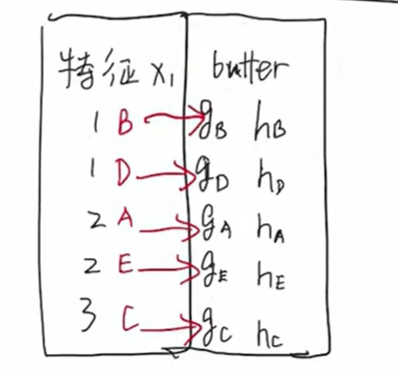 特征 x₁ butter
1 B g_B h_B
1 D g_D h_D
2 A g_A h_A
2 E g_E h_E
3 C g_C h_C